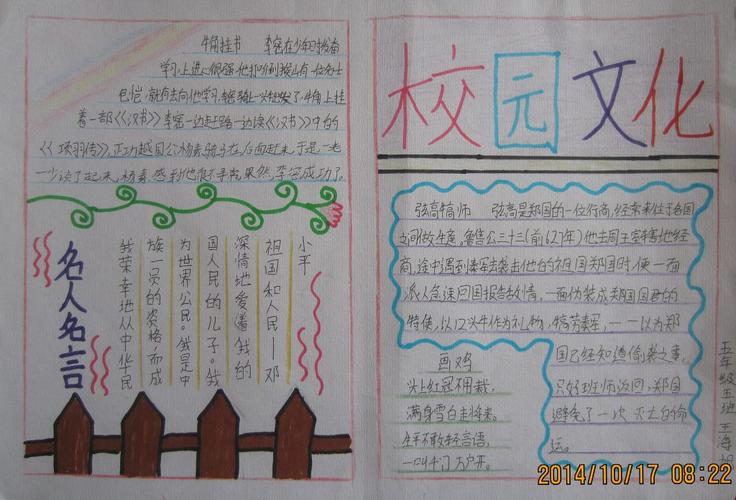 牛角挂书 李密在少年时发奋
学习,上进心很强,他打听到缑山有一位名士
包恺,就前去向他学习,李密骑上一头牛出发了,牛角上挂
着一部《汉书》李密一边赶路一边读《汉书》中的
《项羽传》,正巧越国公杨素骑马在后面赶来,于是一老
一少谈了起来,杨素感到他很寻常,果然,李密成功了。
名人名言
我荣幸地从中华民
族一员的资格,而成
为世界公民。我是中
国人民的儿子。我
深情地爱着我的
祖国和人民——邓
小平
校园文化
弦高犒师 弦高是郑国的一位行商,经常来往于各国
之间做生意,鲁僖公三十三(前627年)他去周王室辖地经
商,途中遇到秦军去袭击他的祖国郑国时,便一面
派人急速回国报告敌情,一面伪装成郑国国君的
特使,以12头牛作为礼物,犒劳秦军,——以为郑
国已经知道偷袭之事,
只好班师返回,郑国
避免了一次灭亡的命
运。
画鸡
头上红冠不用裁,
满身雪白走将来。
生平不敢轻言语,
一叫千门万户开。
五年级五班 王海
2014/10/17 08:22